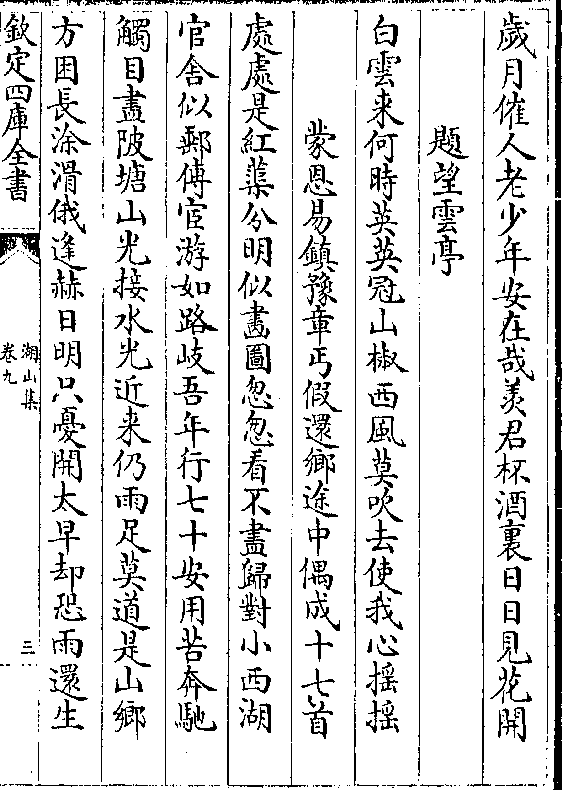 歲月催人老少年安在哉羨君杯酒裏日日見花開
題望雲亭
白雲来何時英英冠山椒西風莫吹去使我心揺揺
蒙恩易鎮豫章丐假還鄉途中偶成十七首
處處是紅蕖分明似畵圖怱怱看不盡歸對小西湖
官舍似郵傳宦游如路岐吾年行七十安用苦奔馳
觸目盡陂塘山光接水光近来仍雨足莫道是山鄉
方困長涂滑俄逢赫日明只憂開太早却恐雨還生
欽定四庫全書
湖山集
卷九
三